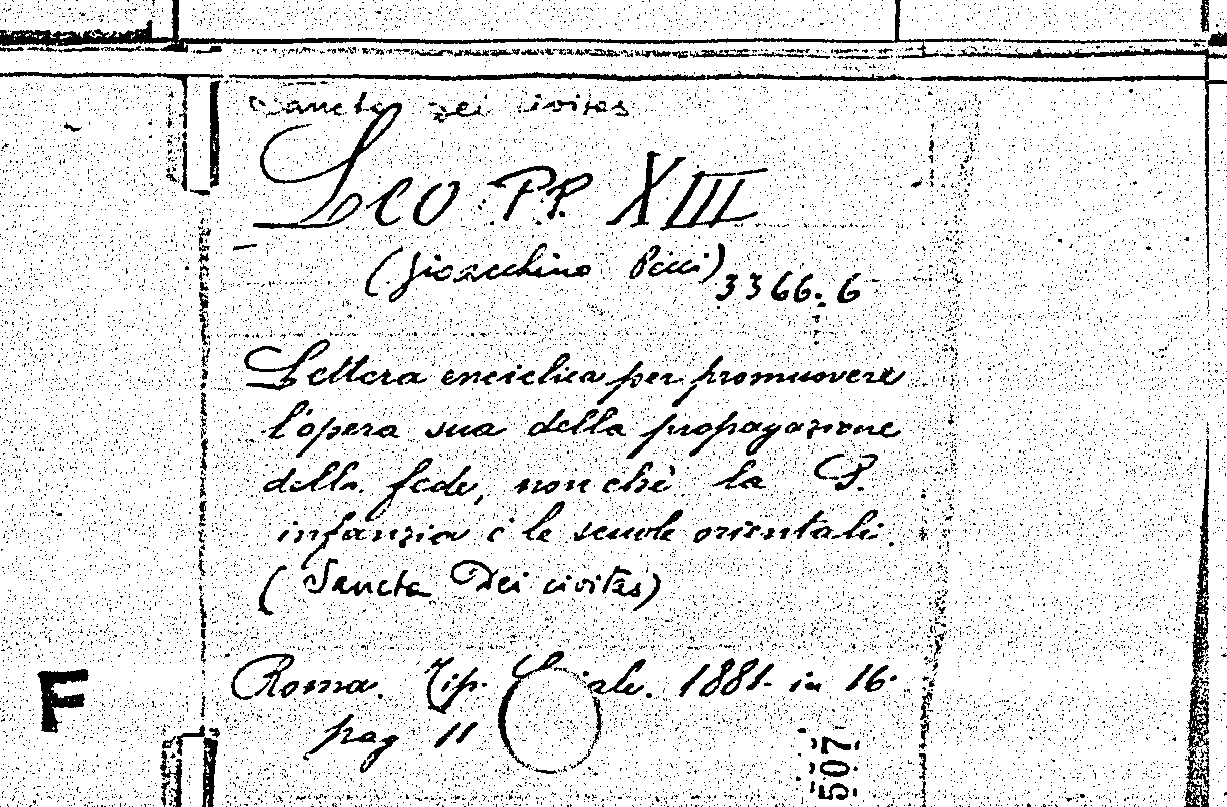 Sancta Dei civitas
Leo PP. XIII
(Gioacchino Pecci)
3366.6
Lettera enciclica per promuovere
l'opera sua della propagazione
della fede, non chè la S.
infanzia e le scuole orientali.
(Sancta Dei civitas)
Roma. Tip. 1881. in 16.
pag 11
F
507